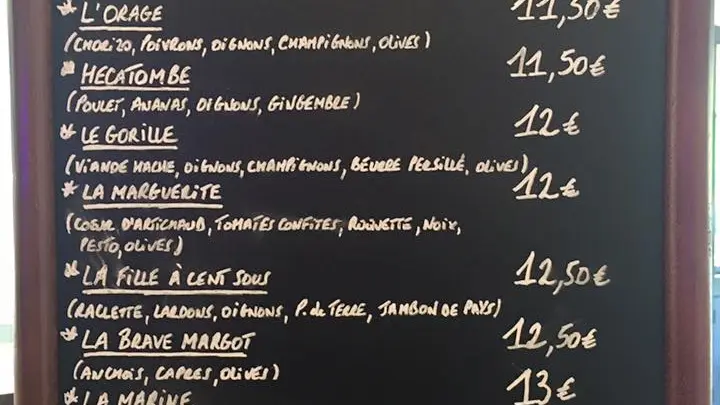 * L'ORAGE 11,50€
(CHORIZO, POIVRONS, OIGNONS, CHAMPIGNONS, OLIVES)
* HECATOMBE 11,50€
(POULET, ANANAS, OIGNONS, GINGEMBRE)
* LE GORILLE 12€
(VIANDE HACHE, OIGNONS, CHAMPIGNONS, BEURRE PERSILLÉ, OLIVES)
* LA MARGUERITE 12€
(COEUR D'ARTICHAUD, TOMATES CONFITES, ROQUETTE, NOIX,
PESTO, OLIVES)
* LA FILLE À CENT SOUS 12,50€
(RACLETTE, LARDONS, OIGNONS, P. de TERRE, JAMBON DE PAYS)
* LA BRAVE MARGOT 12,50€
(ANCHOIS, CAPRES, OLIVES)
* LA MARINE 13€